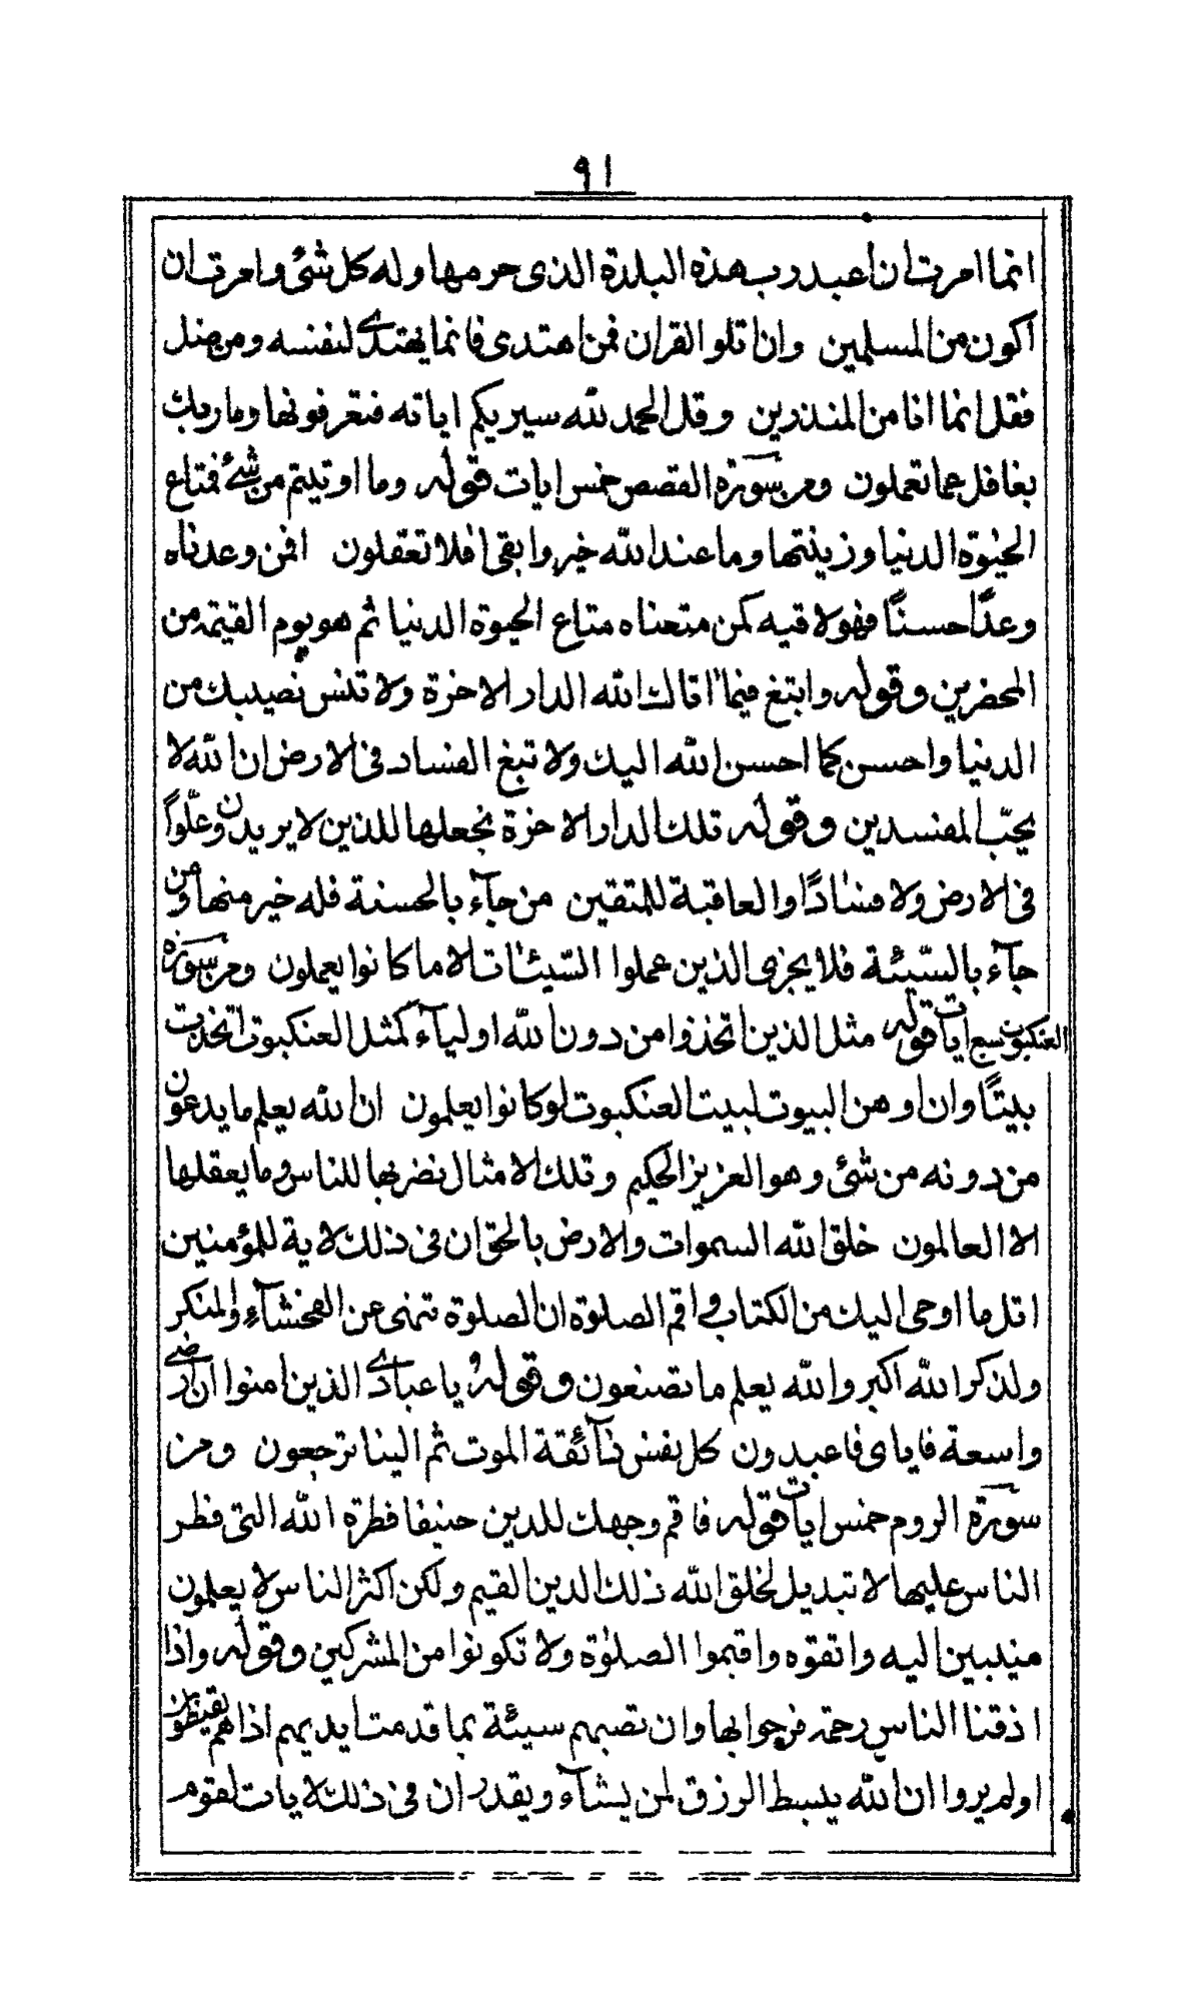 ٩١
انما امرت ان اعبد رب هذه البلدة الذى حرمها وله كل شئ وامرت ان
اكون من المسلمين وان اتلو القران فمن اهتدى فانما يهتدے لنفسه ومن ضل
فقل انما انا من المنذرين وقل الحمد لله سيريكم اياته فتعرفونها وما ربك
بغافل عما تعملون ومن سورة القصص خمس ايات قوله وما اوتيتم من شئے فمتاع
الحيٰوة الدنيا وزينتها وما عند الله خير وابقى افلا تعقلون افمن وعدناه
وعدًا حسنًا فهو لاقيه كمن متعناه متاع الحيوة الدنيا ثم هو يوم القيٰمة من
المحضرين وقوله وابتغ فيما اتاك الله الدار الاخرة ولا تنس نصيبك من
الدنيا واحسن كما احسن الله اليك ولا تبغ الفساد فى الارض ان الله لا
يحبّ المفسدين وقوله تلك الدار الاخرة نجعلها للذين لا يريدون علوًّا
فى الارض ولا فسادًا والعاقبة للمتقين من جآء بالحسنة فله خير منها ومن
جآء بالسّيئة فلا يجزى الذين عملوا السّيئات الا ما كانوا يعملون ومن سورة
العنكبوت سبع ايات قوله مثل الذين اتخذوا من دون الله اوليآء كمثل العنكبوت اتخذت
بيتًا وان اوهن البيوت لبيت العنكبوت لو كانوا يعلمون ان الله يعلم ما يدعون
من دونه من شئ وهو العزيز الحكيم وتلك الامثال نضربها للناس وما يعقلها
الا العالمون خلق الله السموات والارض بالحق ان فى ذلك لاية للمؤمنين
اتل ما اوحى اليك من الكتاب واقم الصلوة ان الصلوة تنهى عن الفحشآء والمنكر
ولذكر الله اكبر والله يعلم ما تصنعون وقوله يا عبادے الذين امنوا ان ارضے
واسعة فاياى فاعبدون كل نفس ذآئقة الموت ثم الينا ترجعون ومن
سورة الروم خمس ايات قوله فاقم وجهك للدين حنيفا فطرة الله التى فطر
الناس عليها لا تبديل لخلق الله ذلك الدين القيم ولكن اكثر الناس لا يعلمون
منيبين اليه واتقوه واقيموا الصلوٰة ولا تكونوا من المشركين وقوله واذا
اذقنا الناس رحمة فرحوا بها وان تصبهم سيئة بما قدمت ايديهم اذا هم يقنطون
اولم يروا ان الله يبسط الرزق لمن يشآء ويقدر ان فى ذلك لايات لقوم